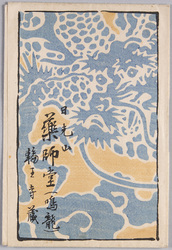 日光山
藥師堂鳴龍
輪王寺蔵